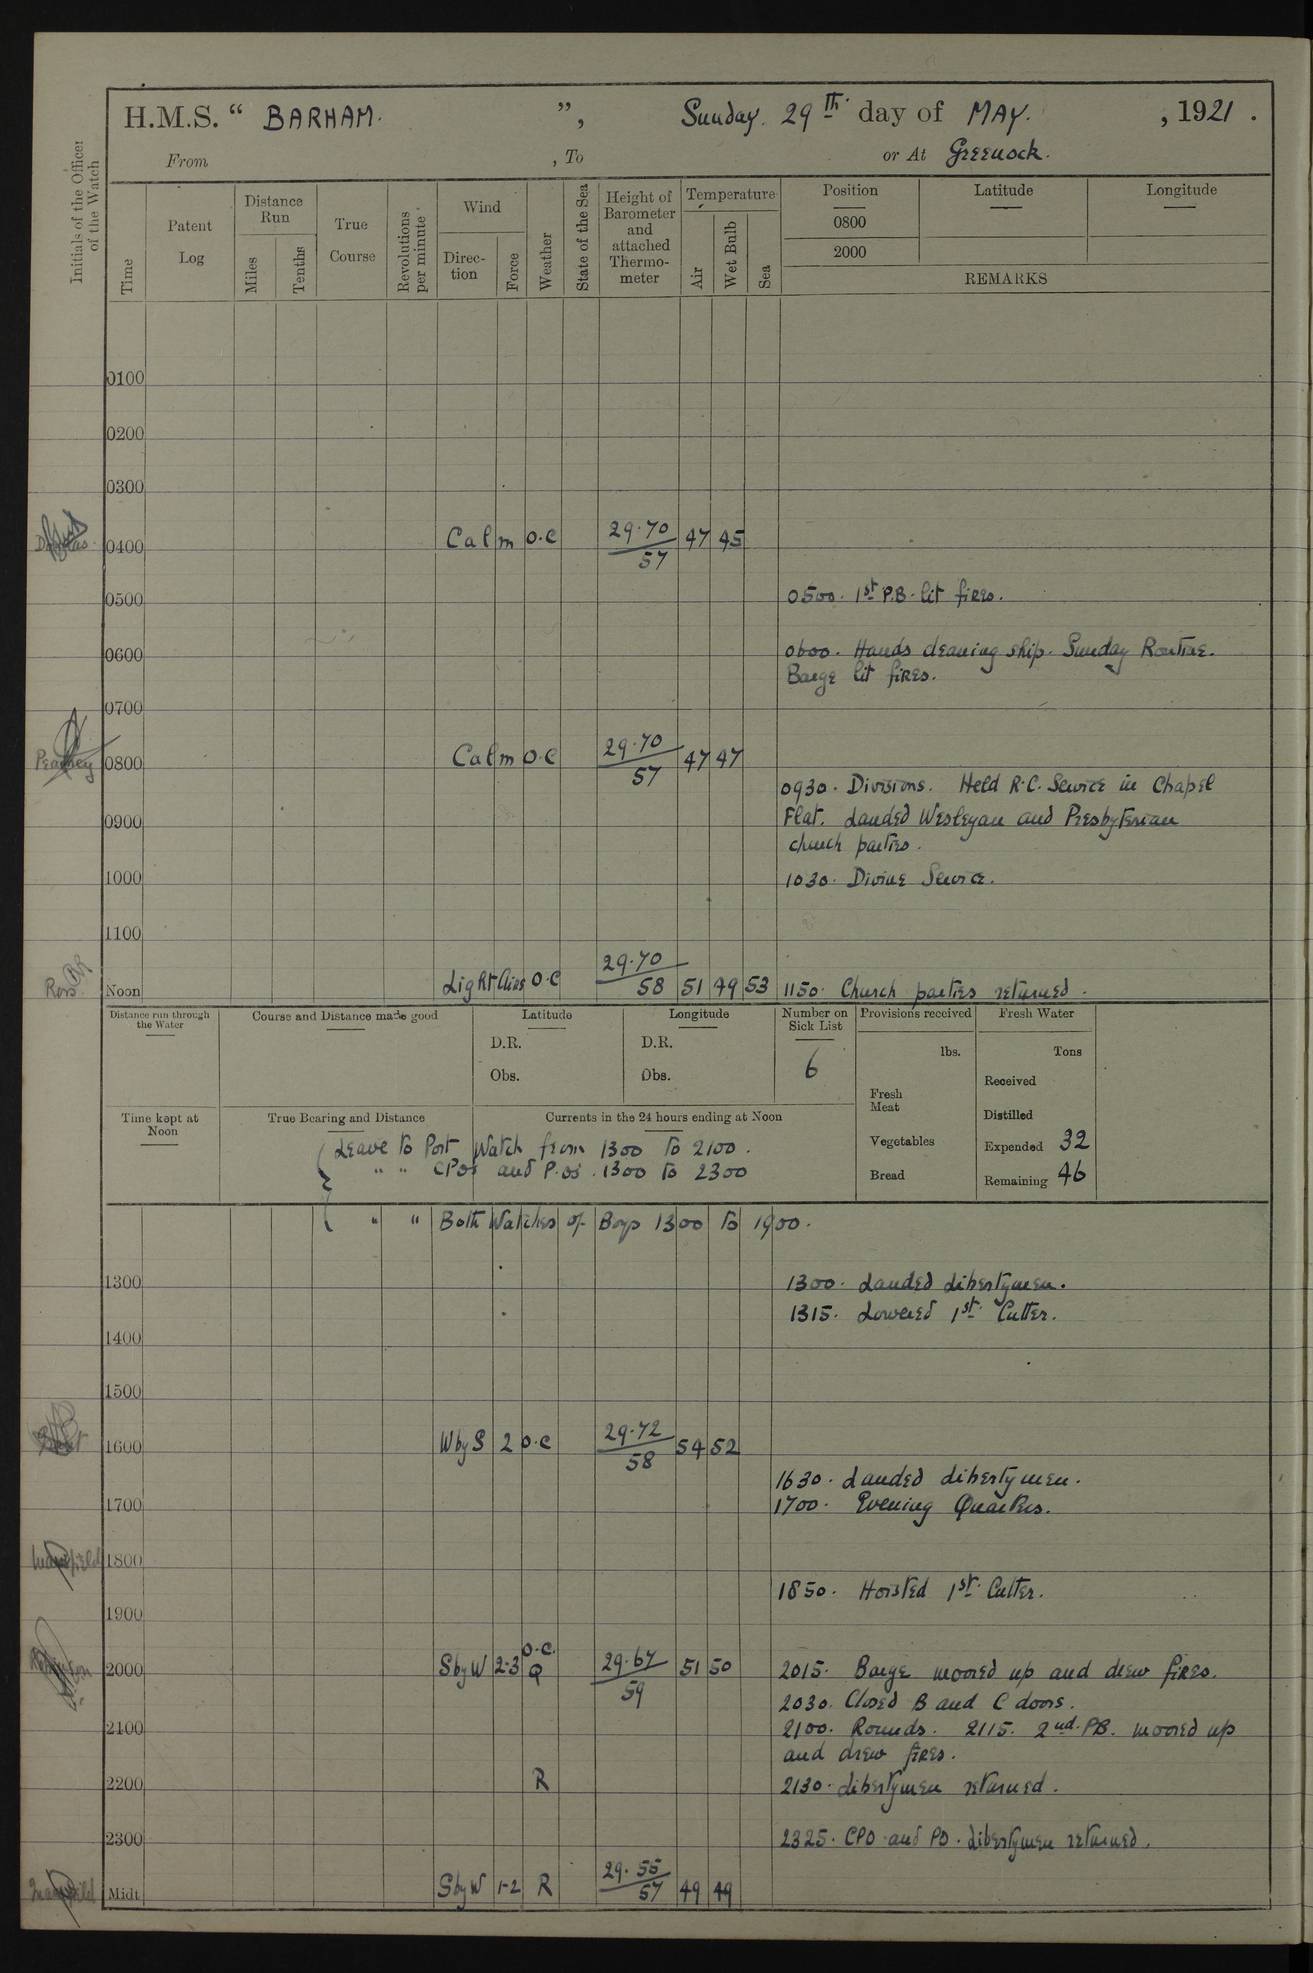 H.M.S. “ BARHAM. ”, Sunday. 29th day of MAY. , 1921.
From , To or At Greenock.
Initials of the Officer of the Watch
Time
Patent Log
Distance Run
Miles
Tenths
True Course
Revolutions per minute
Wind
Direc-tion
Force
Weather
State of the Sea
Height of Barometer and attached Thermo-meter
Temperature
Air
Wet Bulb
Sea
Position Latitude Longitude
0800
2000
REMARKS
0100
0200
0300
0400 Calm o.c 29.70/57 47 45
0500 0500. 1st P.B. lit fires.
0600 0600. Hands cleaning ship. Sunday Routine.
Barge lit fires.
0700
0800 Calm o.c 29.70/57 47 47
0930. Divisions. Held R.C. Service in Chapel
0900 Flat. Landed Wesleyan and Presbyterian
church parties.
1000 1030. Divine Service.
1100
Ross
Noon Light Airs o.c 29.70/58 51 49 53 1150. Church parties returned.
Distance run through the Water
Course and Distance made good
Latitude
D.R.
Obs.
Longitude
D.R.
Obs.
Number on Sick List
6
Provisions received
lbs.
Fresh Meat
Vegetables
Bread
Fresh Water
Tons
Received
Distilled
Expended 32
Remaining 46
Time kept at Noon
True Bearing and Distance
Currents in the 24 hours ending at Noon
Leave to Port Watch from 1300 to 2100.
" " CPOs and P.Os. 1300 to 2300
" " Both Watches of Boys 1300 to 1900.
1300 1300. Landed libertymen.
1315. Lowered 1st Cutter.
1400
1500
1600 W by S 2 o.c 29.72/58 54 52
1630. Landed libertymen.
1700 1700. Evening Quarters.
1800
1850. Hoisted 1st Cutter.
1900
2000 S by W 2-3 o.c. Q 29.67/59 51 50 2015. Barge moored up and drew fires.
2030. Closed B and C doors.
2100 2100. Rounds. 2115. 2nd P.B. moored up
and drew fires.
2200 R 2130. Libertymen returned.
2300 2325. CPO and PO. Libertymen returned.
Midt S by W 1-2 R 29.55/57 49 49